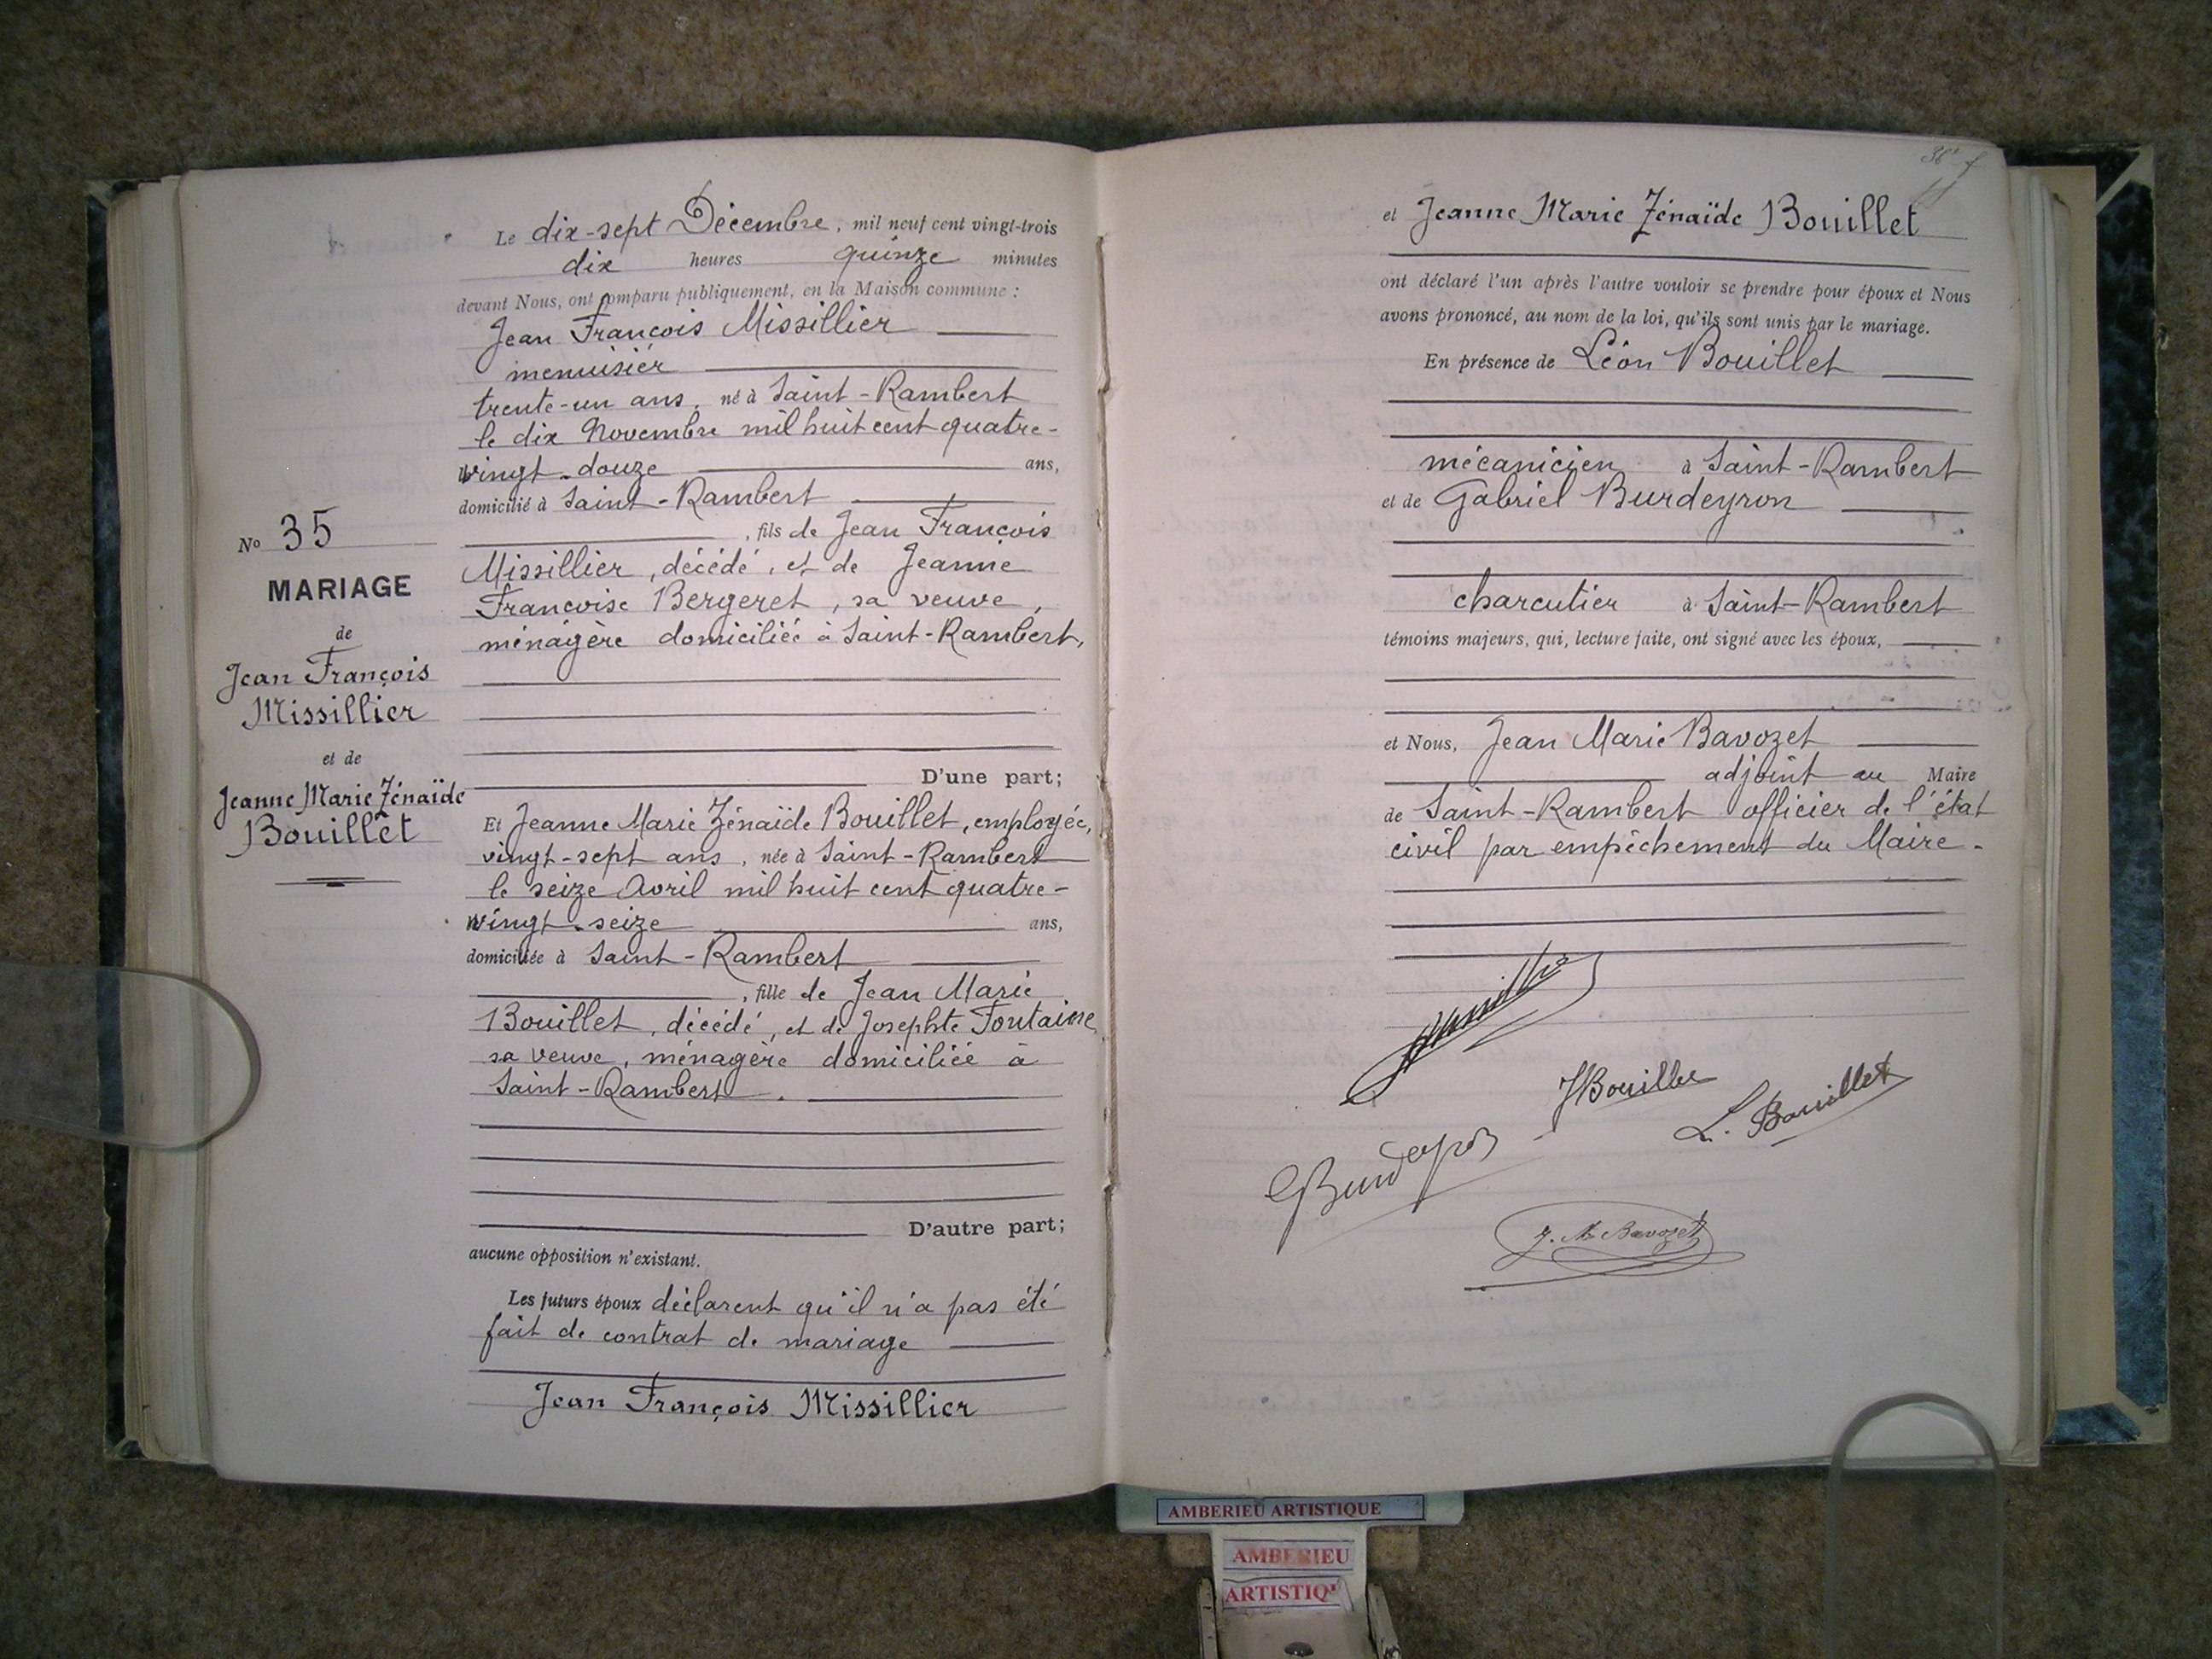 Le dix-sept Décembre, mil neuf cent vingt-trois
dix heures quinze minutes
devant Nous, ont comparu publiquement, en la Maison commune :
Jean François Missillier
menuisier
trente-un ans, né à Saint-Rambert
le dix Novembre mil huit cent quatre-
vingt-douze ans,
domicilié à Saint-Rambert
, fils de Jean François
Missillier, décédé, et de Jeanne
Françoise Bergeret, sa veuve,
ménagère domiciliée à Saint-Rambert,
D'une part;
Et Jeanne Marie Zénaïde Bouillet, employée,
vingt-sept ans, née à Saint-Rambert
le seize Avril mil huit cent quatre-
vingt-seize ans,
domiciliée à Saint-Rambert
, fille de Jean Marie
Bouillet, décédé, et de Josephte Fontaine
sa veuve, ménagère domiciliée à
Saint-Rambert.
D'autre part;
aucune opposition n'existant.
Les futurs époux déclarent qu'il n'a pas été
fait de contrat de mariage
Jean François Missillier
No 35
MARIAGE
de
Jean François
Missillier
et de
Jeanne Marie Zénaïde
Bouillet
et Jeanne Marie Zénaïde Bouillet
ont déclaré l'un après l'autre vouloir se prendre pour époux et Nous
avons prononcé, au nom de la loi, qu'ils sont unis par le mariage.
En présence de Léon Bouillet
mécanicien à Saint-Rambert
et de Gabriel Burdeyron
charcutier à Saint-Rambert
témoins majeurs, qui, lecture faite, ont signé avec les époux,
et Nous, Jean Marie Bavozet
adjoint au Maire
de Saint-Rambert officier de l'état
civil par empêchement du Maire.
JBouillet
L. Bouillet
GBurdeyron
J. M. Bavozet
AMBERIEU ARTISTIQUE
AMBERIEU
ARTISTIQ